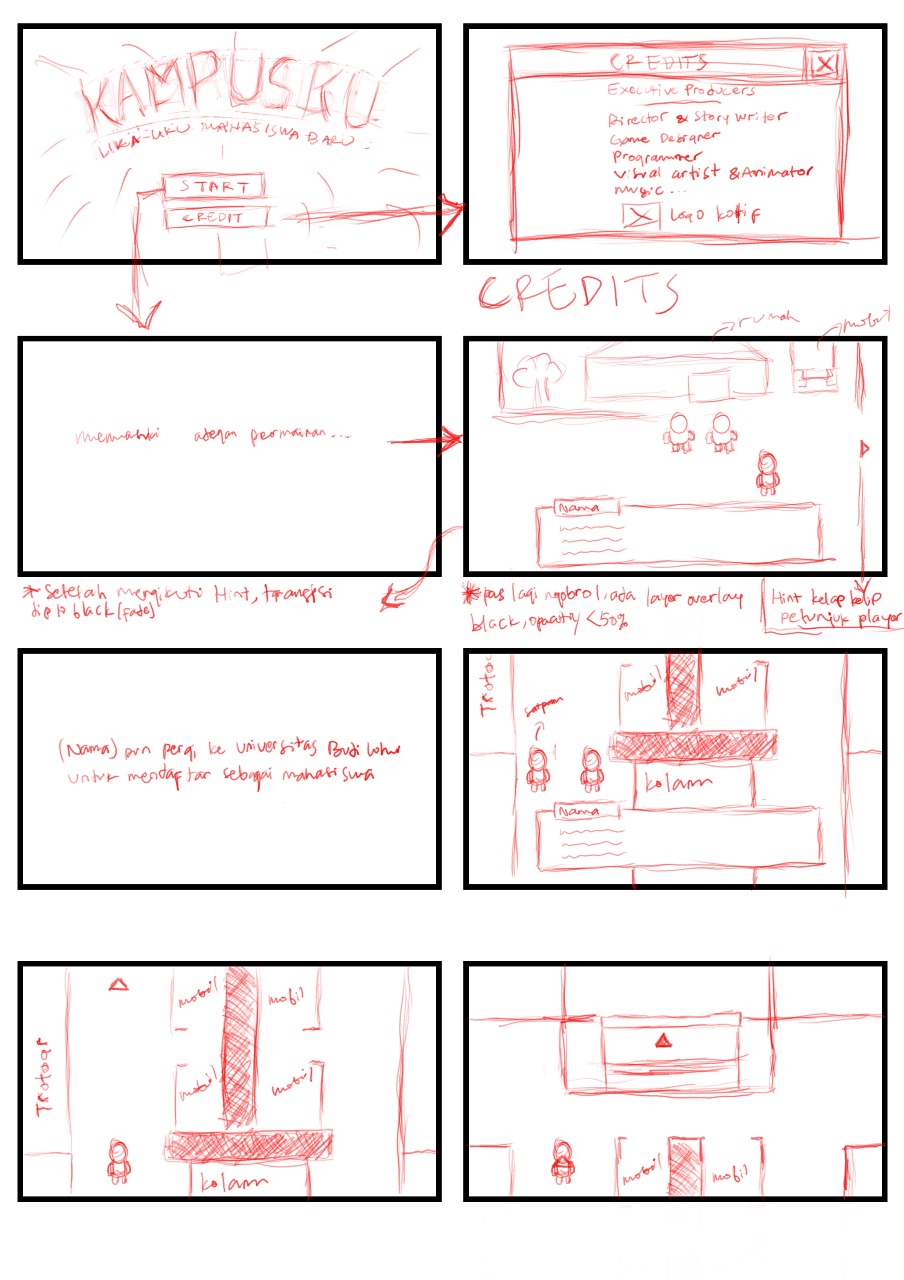 KAMPUSKU
LIKA-LIKU MAHASISWA BARU
START
CREDIT
CREDITS
Executive Producers
Director & Story Writer
Game Designer
Programmer
Visual artist & Animator
Music...
Logo
CREDITS
rumah
mobil
permainan...
Nama
* Setelah mengikuti Hint, transisi
dip to black (fade)
* pas lagi ngobrol, ada layer overlay
black, opacity <50%
Hint kelap kelip
petunjuk player
(Nama) pun pergi ke universitas Budi luhur
untuk mendaftar sebagai mahasiswa
Trotoar
satpam
mobil
mobil
kolam
Nama
Trotoar
mobil
mobil
mobil
mobil
kolam
mobil
mobil